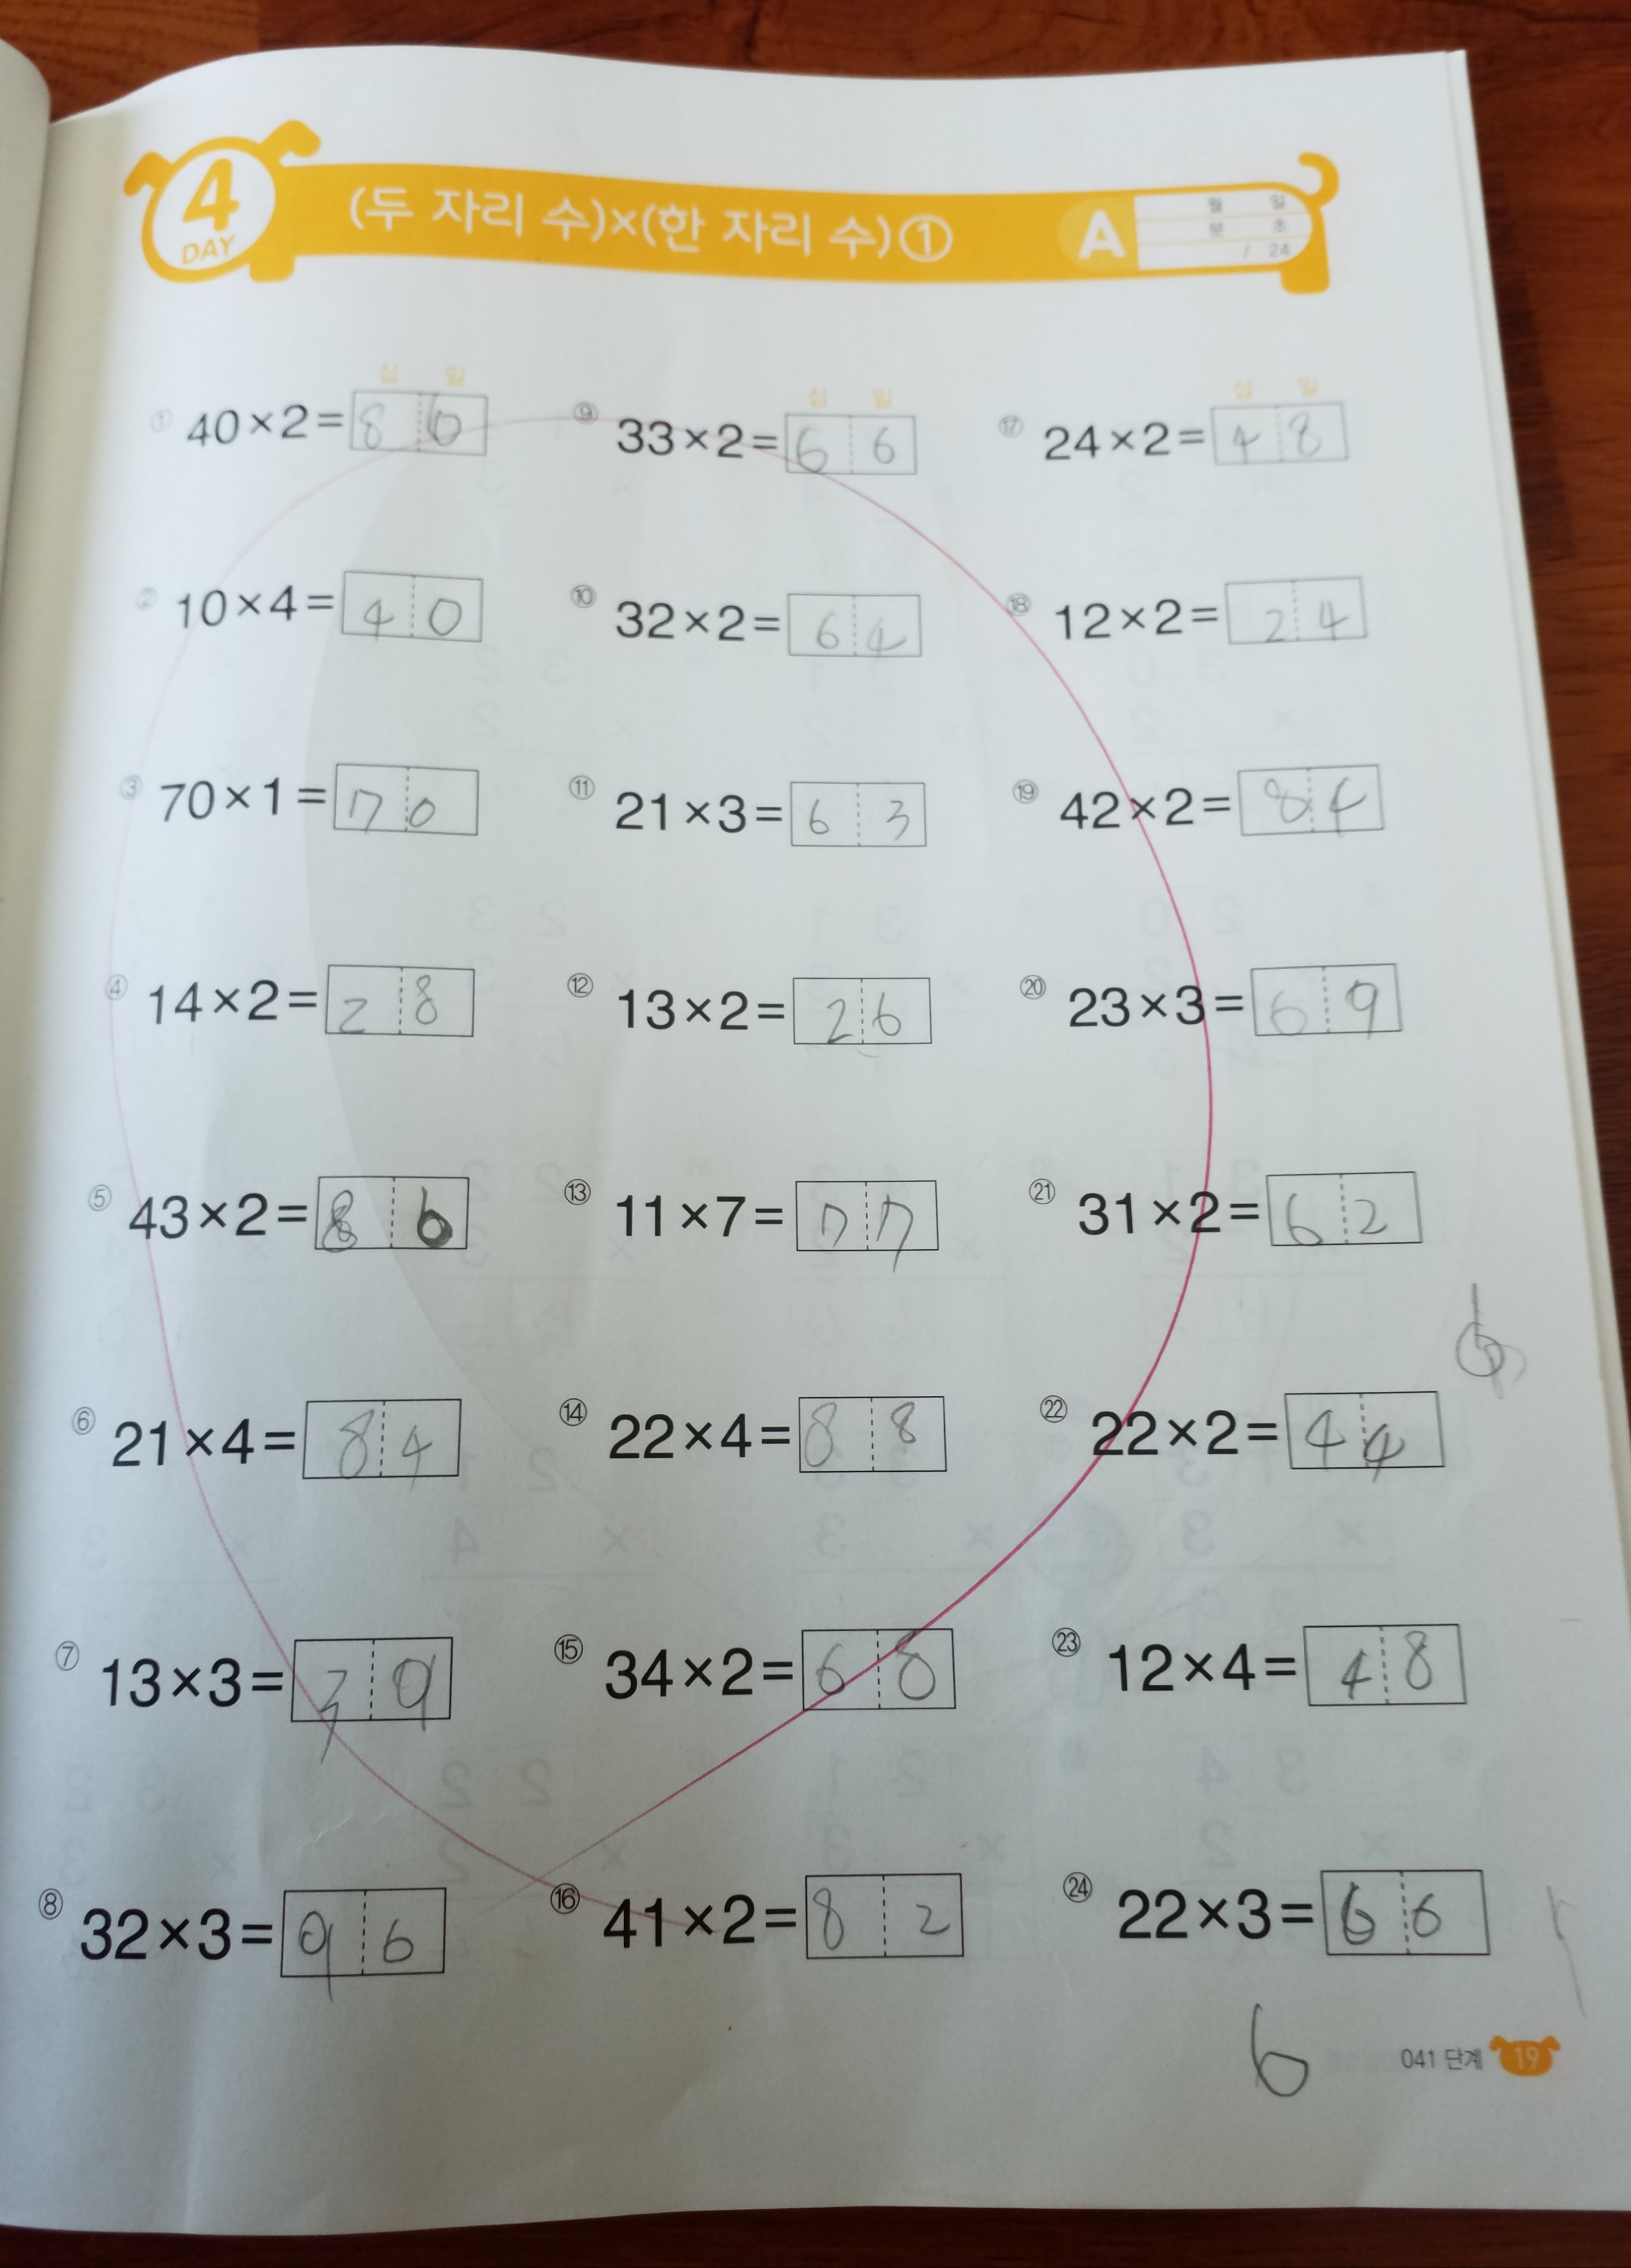 4 DAY
(두 자리 수)×(한 자리 수)①
A
월 일
분 초
/ 24
십 일
① 40×2=80
② 10×4=40
③ 70×1=70
④ 14×2=28
⑤ 43×2=86
⑥ 21×4=84
⑦ 13×3=39
⑧ 32×3=96
십 일
⑨ 33×2=66
⑩ 32×2=64
⑪ 21×3=63
⑫ 13×2=26
⑬ 11×7=77
⑭ 22×4=88
⑮ 34×2=68
⑯ 41×2=82
십 일
⑰ 24×2=48
⑱ 12×2=24
⑲ 42×2=84
⑳ 23×3=69
㉑ 31×2=62
6
㉒ 22×2=44
㉓ 12×4=48
㉔ 22×3=66
6
041 단계 19